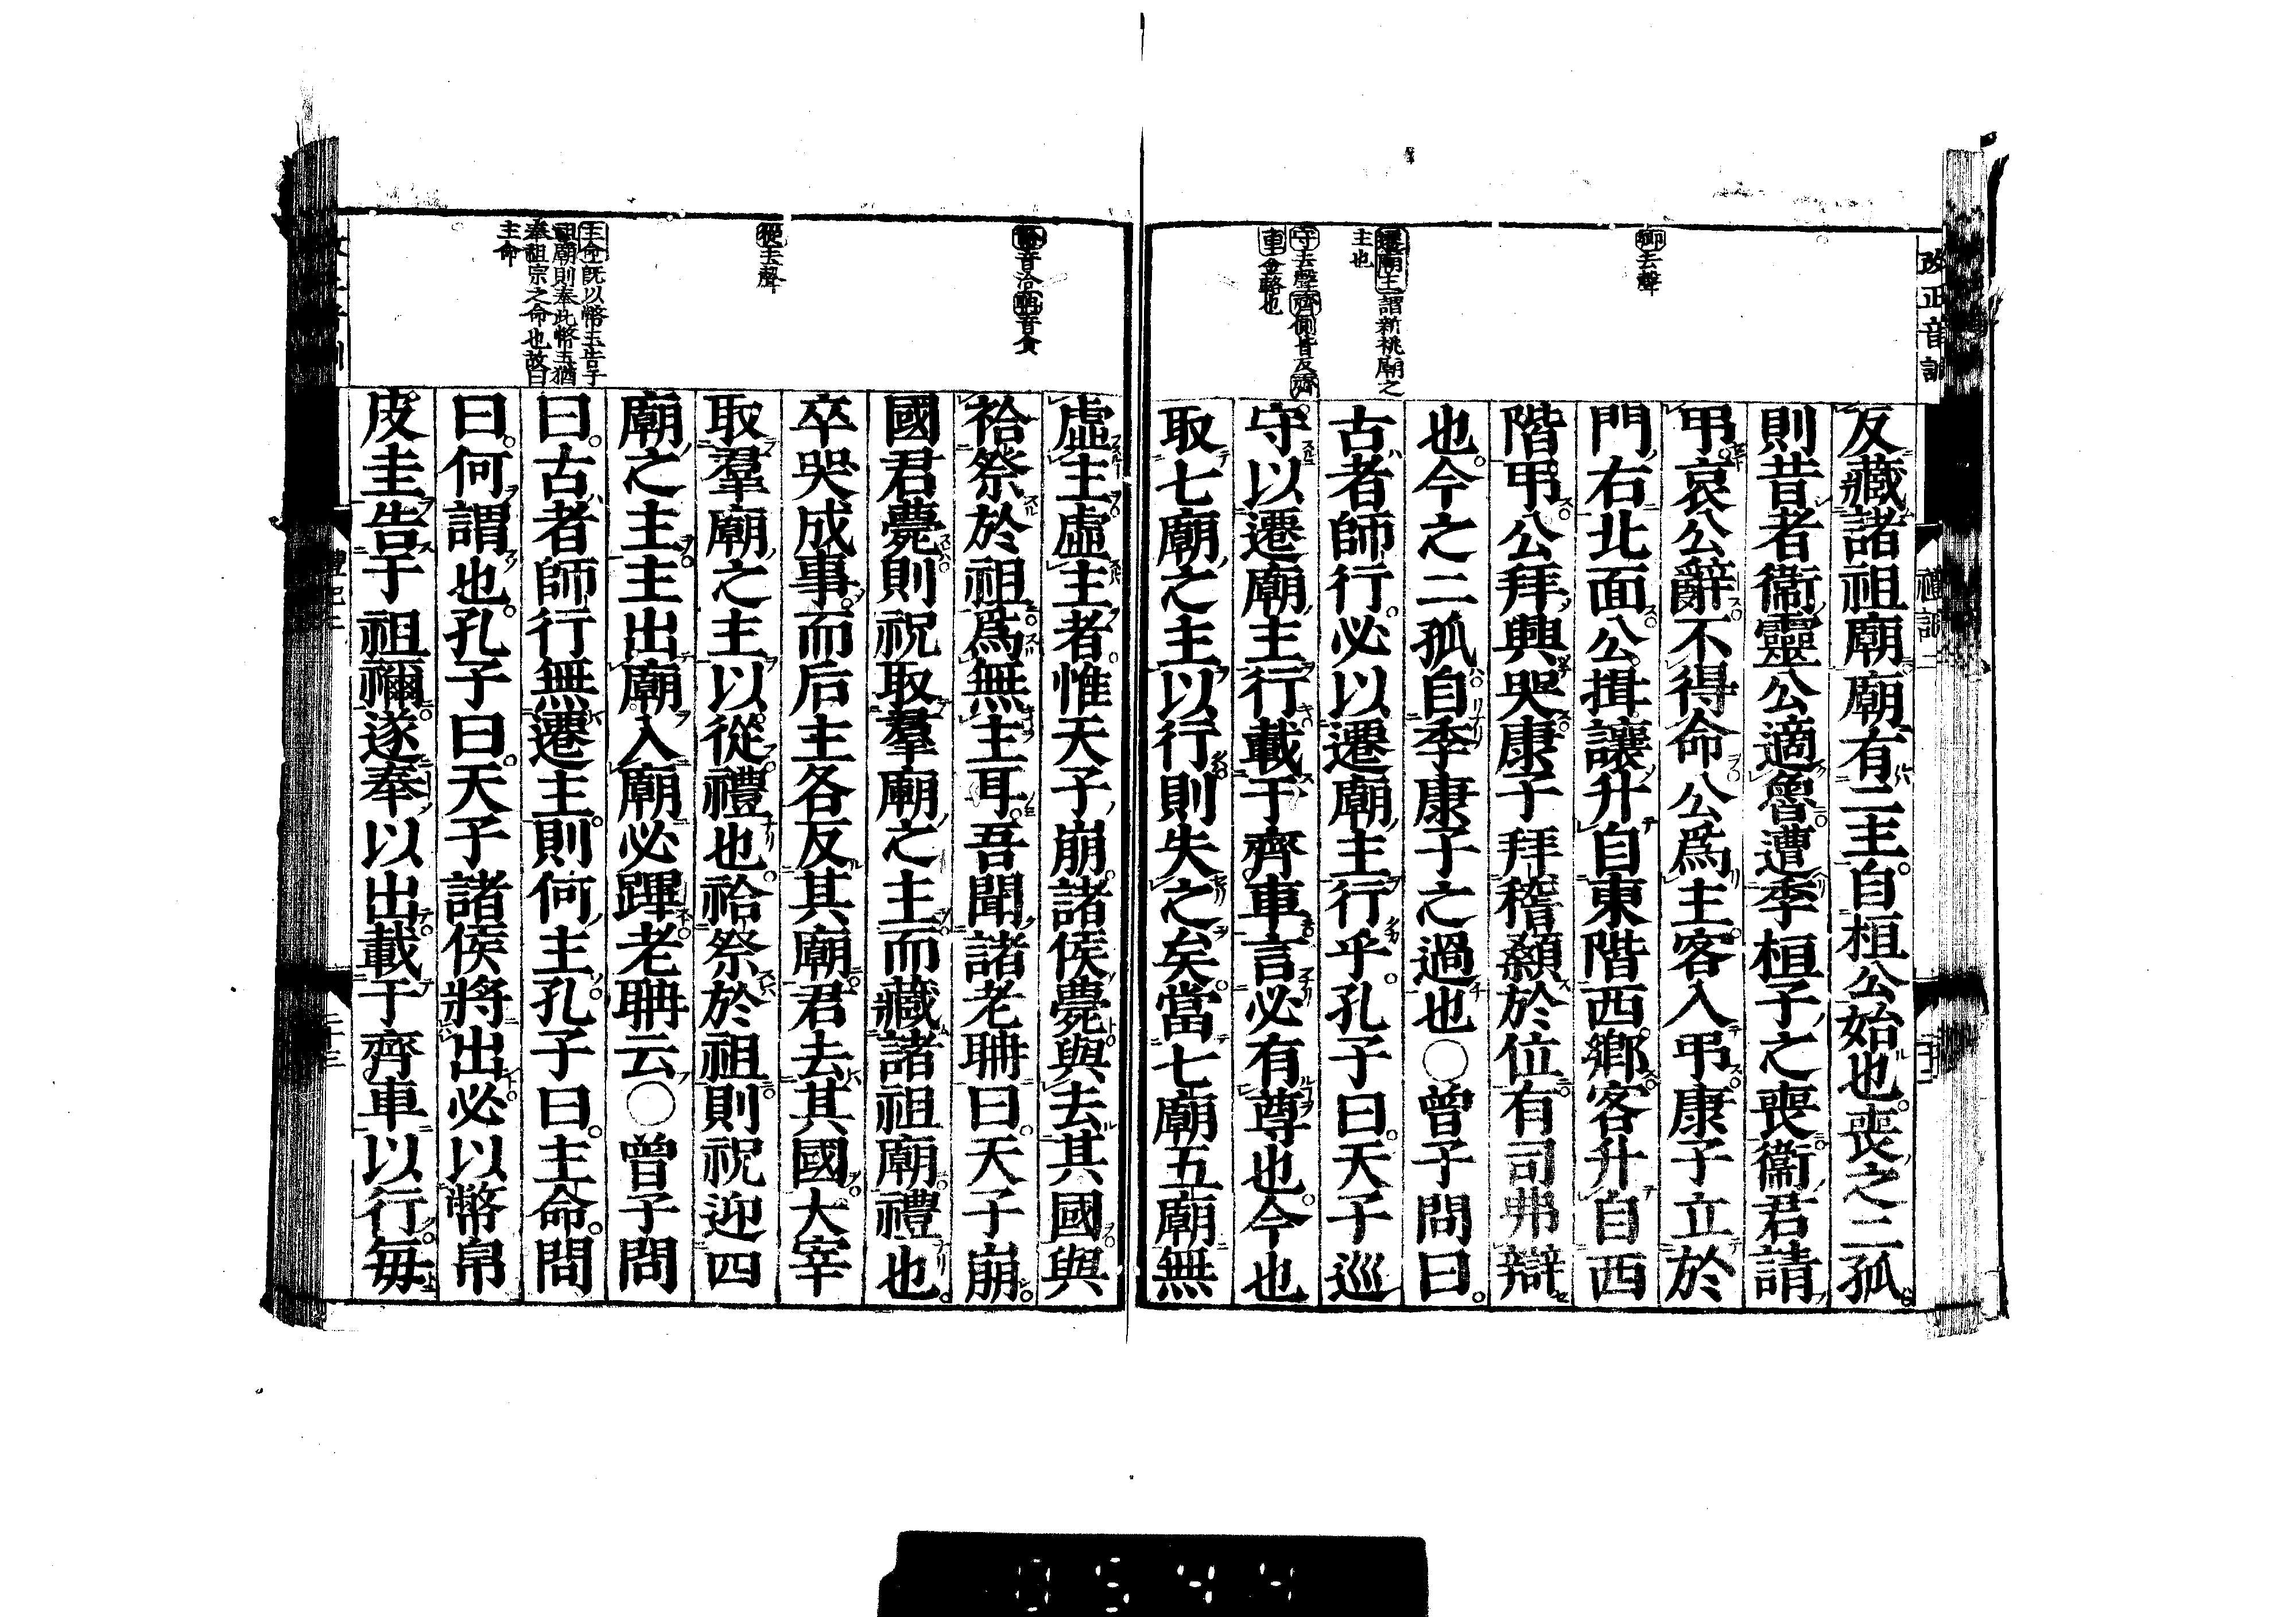 改正音訓
禮記二
鄉去聲
遷廟主謂新祧廟之
主也
守去聲齊側皆反齊
車金輅也
反藏諸祖廟廟有二主自桓公始也喪之二孤
則昔者衞靈公適魯遭季桓子之喪衞君請
弔哀公辭不得命公爲主客入弔康子立於
門右北面公揖讓升自東階西鄉客升自西
階弔公拜興哭康子拜稽顙於位有司弗辯
也今之二孤自季康子之過也○曾子問曰
古者師行必以遷廟主行乎孔子曰天子巡
守以遷廟主行載于齊車言必有尊也今也
取七廟之主以行則失之矣當七廟五廟無
祫音洽聃音貪
從去聲
主命旣以幣玉告于
祖廟則奉此幣玉猶
奉祖宗之命也故曰
主命
虛主虛主者惟天子崩諸侯薨與去其國與
祫祭於祖爲無主耳吾聞諸老聃曰天子崩
國君薨則祝取羣廟之主而藏諸祖廟禮也
卒哭成事而后主各反其廟君去其國大宰
取羣廟之主以從禮也祫祭於祖則祝迎四
廟之主主出廟入廟必蹕老聃云○曾子問
曰古者師行無遷主則何主孔子曰主命問
曰何謂也孔子曰天子諸侯將出必以幣帛
皮圭告于祖禰遂奉以出載于齊車以行每
禮記二
二十三